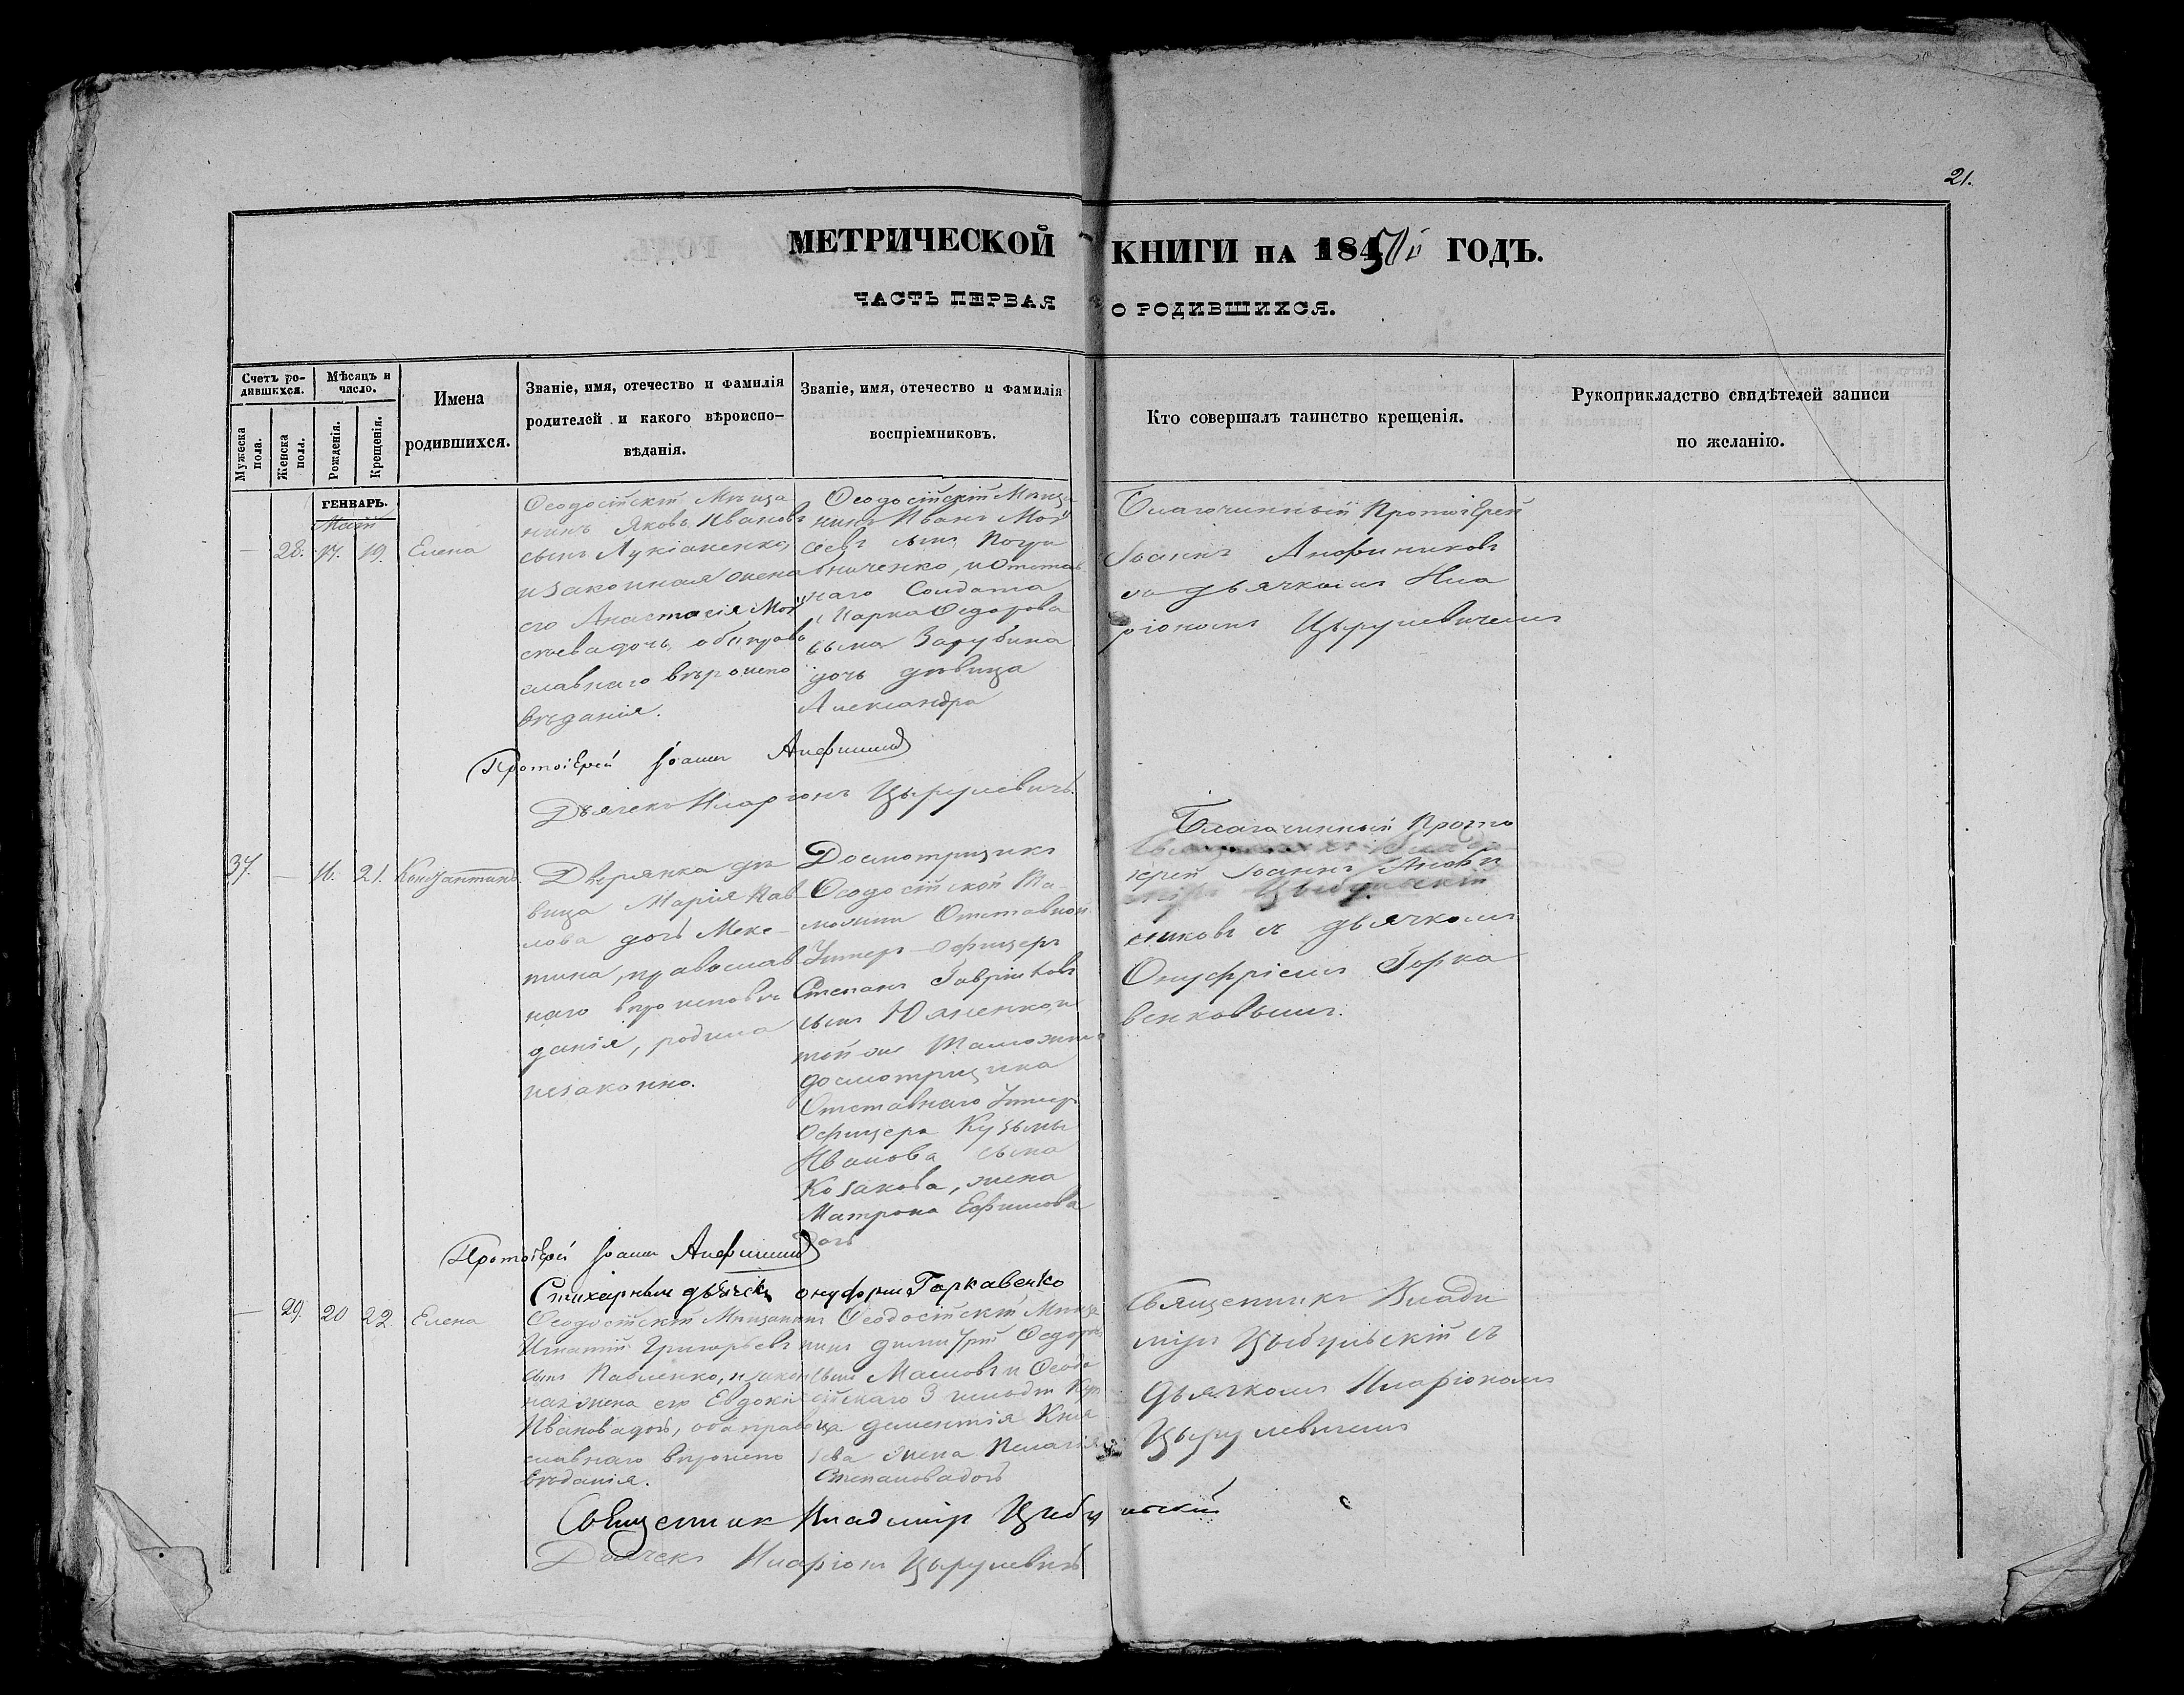 21.
МЕТРИЧЕСКОЙ КНИГИ НА 1850й ГОДЪ.
ЧАСТЬ ПЕРВАЯ О РОДИВШИХСЯ.
Счетъ ро-
дившихся.
Мужеска
пола.
Женска
пола.
Мѣсяцъ и
число.
Рожденія.
Крещенія.
Имена
родившихся.
Званіе, имя, отечество и фамилія
родителей и какого вѣроиспо-
вѣданія.
Званіе, имя, отечество и фамилія
воспріемниковъ.
Кто совершалъ таинство крещенія.
Рукоприкладство свидѣтелей записи
по желанію.
ГЕНВАРЬ.
Май
— 28. 17. 19. Елена
Ѳеодосійскій Мѣща
нинъ Яковъ Ивановъ
сынъ Лукіаненко,
и законная жена
его Анастасія Мой
сеева дочь, оба право
славнаго вѣроиспо
вѣданія.
Ѳеодосійскій Мѣща
нинъ Иванъ Мой
сеевъ сынъ
и Отстав
наго Солдата
Марка Ѳедорова
сына Зарубина
дочь дѣвица
Александра
Благочинный Протоіерей
Іоаннъ Анофиниковъ
съ дьячкомъ Ила
ріономъ Цырулевичемъ
Протоіерей Іоаннъ
Дьячекъ Иларіонъ Цырулевичъ.
37. — 16. 21. Константинъ
Дворянка дѣ
вица Марія Пав
лова дочь
православ
наго вѣроисповѣ
данія, родила
незаконно.
Досмотрщикъ
Ѳеодосійской Та-
можни Отставной
Унтеръ-офицеръ
Степанъ Гавріиловъ
сынъ Юхненко, и
той же Таможни
досмотрщика
Отставнаго Унтеръ
Офицера Кузьмы
Иванова сына
Козакова, жена
Матрона Ефимова
дочь
Благочинный Прото
іерей Іоаннъ Анофи
никовъ съ дьячкомъ
Онуфріемъ Горка
венковымъ.
Протоіерей Іоаннъ
Стихарный дьячекъ Онуфрий Горкавенко
— 29. 20 22. Елена
Ѳеодосійскій Мѣщанинъ
Игнатій Григорьевъ
сынъ Павленко, и закон
ная жена его Евдокія
Иванова дочь, оба право
славнаго вѣроиспо
вѣданія.
Ѳеодосійскій Мѣща
нинъ Димитрій Ѳедоровъ
сынъ Масловъ и Ѳеодо
сійскаго 3 гильдіи Куп
ца Дементія Кня
зева жена Пелагія
Степанова дочь
Священникъ Влади
міръ Цыбульскій съ
дьячкомъ Иларіономъ
Цырулевичемъ
Священник Владимір Цибульскій
Дьячекъ Иларіонъ Цырулевичъ